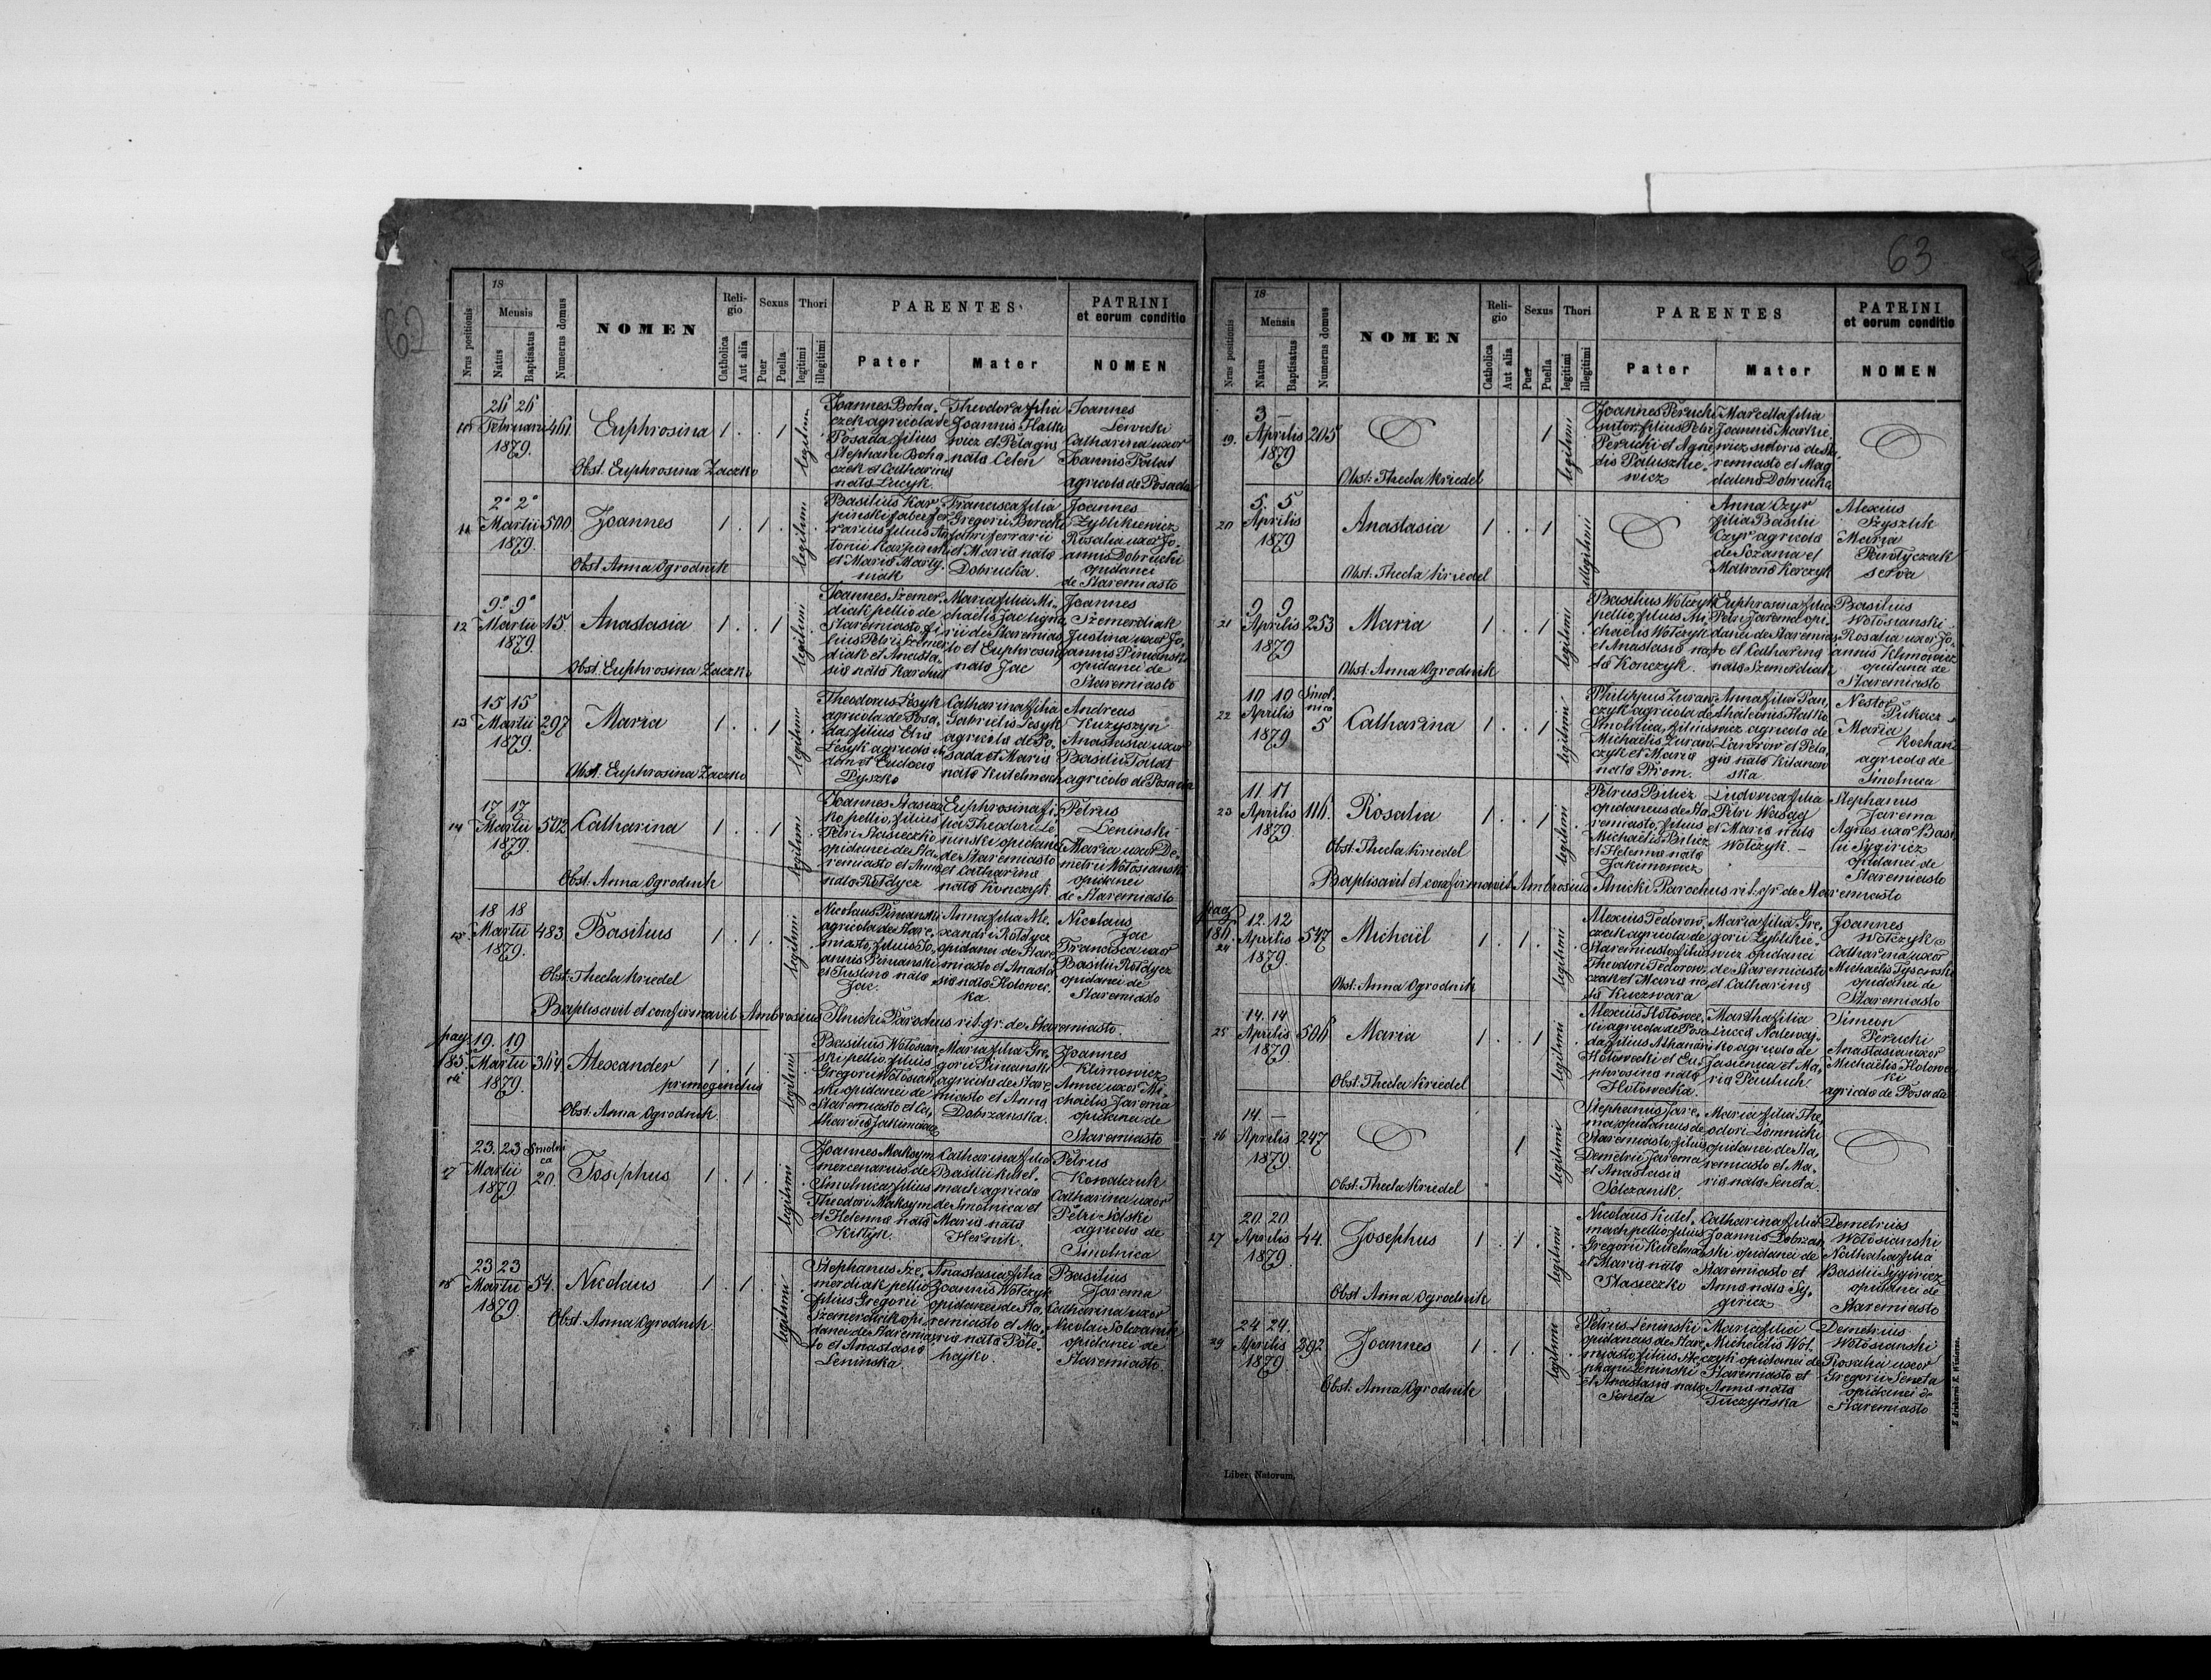 62
18
Nrus positionis
Mensis
Natus
Baptisatus
Numerus domus
NOMEN
Religio
Catholica
Aut alia
Sexus
Puer
Puella
Thori
legitimi
illegitimi
PARENTES
Pater
Mater
PATRINI
et eorum conditio
NOMEN
26 26
Februarii 461
1879.
Euphrosina 1 . . 1
legitimi
Obst. Euphrosina Zaczko
Joannes Boha-
czek agricola de
Posada filius
Stephani Boha
czek et Catharina
nata Lucyk.
Theodora filia
Joannis Halko
wicz et Pelagia
nata Celen
Joannes
Lewicki
Catharina uxor
Joannis Toilat
agricola de Posada
11
2º 2º
Martii 500
1879.
Joannes 1 . 1 .
legitimi
Obst. Anna Ogrodnik
Basilius Kar
pinski faber fer
rarius filius An
tonii Karpinski
et Maria Marty
niak
Francisca filia
Gregorii Borecki
fabri ferrarii
et Maria nata
Dobrucka.
Joannes
Zyblikiewicz
Rosalia uxor Jo-
annis Dobrucki
opidanei
de Staremiasto
12
9º 9º
Martii 15
1879.
Anastasia 1 . . 1
legitimi
Obst. Euphrosina Zaczko
Joannes Szemer-
diak pellio de
Staremiasto fi
lius Petri Szemer
diak et Anasta-
sia nata Karchut
Maria filia Mi-
chaëlis Jac ligna
rii de Staremias
to et Euphrosina
nata Jac
Joannes
Szemerdiak
Justina uxor Jo-
annis Pimanski
opidanei de
Staremiasto
13
15 15
Martii 297
1879.
Maria 1 . . 1
legitimi
Obst. Euphrosina Zaczko
Theodorus Lesyk
agricola de Posa-
da filius Elia
Lesyk agricola i-
dem et Eudocia
Dyszko
Catharina filia
Gabrielis Lesyk
agricola de Po-
sada et Maria
nata Kutelmach
Andreas
Kuzyszyn
Anastasia uxor
Basilii Toilat
agricola de Posada
14
17 17
Martii 502
1879.
Catharina 1 . . 1
legitimi
Obst. Anna Ogrodnik
Joannes Stasiecz
ko pellio, filius
Petri Stasieczko
opidanei de Sta-
remiasto et Anna
nata Rotdycz
Euphrosina fi-
lia Theodori Le-
ninski opidanei
de Staremiasto
et Catharina
nata Konczyk
Petrus
Leninski
Maria uxor De-
metrii Wołosianski
opidanei
de Staremiasto
15
18 18
Martii 483
1879.
Basilius 1 . 1 .
legitimi
Obst. Thecla Kriedel
Nicolaus Pimanski
agricola de Stare-
miasto, filius Jo-
annis Pimanski
et Justina nata
Jac.
Anna filia Ale-
xandri Rotdycz
opidanei de Stare
miasto et Anasta
sia nata Hołowec-
ka
Nicolaus
Jac
Francisca uxor
Basilii Rotdycz
opidanei de
Staremiasto
Baptisavit et confirmavit Ambrosius Ilnicki Parochus rit. gr. de Staremiasto.
pag.
185
19. 19
Martii 364
1879.
Alexander 1 . 1
primogenitus
legitimi
Obst. Anna Ogrodnik.
Basilius Wołosian
ski pellio, filius
Gregorii Wołosian
ski opidanei de
Staremiasto et Ca-
tharina Jakimowicz
Maria filia Gre
gorii Pimanski
agricola de Stare
miasto et Anna
Dobrzanska.
Joannes
Klimowicz
Anna uxor Mi-
chaëlis Jarema
opidanei de
Staremiasto
17
23. 23
Smolni
ca
Martii 20
1879
Josephus 1 . 1 .
legitimi
Joannes Maksym
mercenarius de
Smolnica filius
Theodori Maksym
et Helenna nata
Kittyk.
Catharina filia
Basilii Kutel-
mach agricola
de Smolnica et
Maria nata
Hernik.
Petrus
Kowalczuk
Catharina uxor
Petri Solski
agricola de
Smolnica
18
23 23
Martii 54.
1879.
Nicolaus 1 . 1
legitimi
Obst. Anna Ogrodnik.
Stephanus Sze-
merdiak pellio
filius Gregorii
Szemerdiak opi
danei de Staremias
to et Anastasia
Leninska.
Anastasia filia
Joannis Wołczyk
opidanei de Sta-
remiasto et Ma-
ria nata Pote-
hajko.
Basilius
Jarema
Catharina uxor
Nicolai Solczanik
opidanei de
Staremiasto
63
18
Nrus positionis
Mensis
Natus
Baptisatus
Numerus domus
NOMEN
Religio
Catholica
Aut alia
Sexus
Puer
Puella
Thori
legitimi
illegitimi
PARENTES
Pater
Mater
PATRINI
et eorum conditio
NOMEN
19.
3 —
Aprilis 205
1879
1
legitimi
Obst. Thecla Kriedel
Joannes Peruchi
sutor, filius Petri
Peruchi et Agne
tis Paluszkie-
wicz
Marcella filia
Joannis Markie-
wicz sutoris de Sta
remiasto et Mag
dalena Dobrucka
20
5. 5
Aprilis
1879
Anastasia 1 . . 1
illegitimi
Obst. Thecla Kriedel
Anna Czyr
filia Basilii
Czyr agricola
de Sozania et
Matrona Kerczyk
Alexius
Szyszlik
Maria
Pawłyczak
serva
21
9 9
Aprilis 253
1879
Maria 1 . . 1
legitimi
Obst. Anna Ogrodnik
Basilius Wołczyk
pellio, filius Mi-
chaëlis Wołczyk
et Anastasia na
ta Konczyk.
Euphrosina filia
Petri Jarema opi-
danei de Staremias
to et Catharina
nata Szemerdiak
Basilius
Wołosianski
Rosalia uxor Jo-
annis Klimowicz
opidanei de
Staremiasto
22
10 10
Smol-
nica
Aprilis 5
1879
Catharina 1 . . 1
legitimi
Philippus Zuraw
czyk agricola de
Smolnica, filius
Michaëlis Zuraw-
czyk et Maria
nata Prom.
Anna filia Pan-
thaleonis Halko
wicz agricola de
Lawrow et Pela
gia nata Kilanow
ska
Nestor
Pukacz
Maria
Kochan
agricola de
Smolnica
23
11 11
Aprilis 116.
1879.
Rosalia 1 . . 1
legitimi
Obst. Thecla Kriedel
Petrus Bilicz
opidaneus de Sta
remiasto, filius
Michaëlis Bilicz
et Helenna nata
Jakimowicz
Ludovica filia
Petri Wasag
et Maria nata
Wołczyk.
Stephanus
Jarema
Agnes uxor Basi
lii Sygiricz
opidanei de
Staremiasto
Baptisavit et confirmavit Ambrosius Ilnicki Parochus rit. gr. de Staremiasto
pag.
186.
24
12. 12
Aprilis 547
1879.
Michaël 1 . 1 .
legitimi
Obst. Anna Ogrodnik
Alexius Fedorow-
czak agricola de
Staremiasto, filius
Theodori Fedorow-
czak et Maria na
ta Kuczwara
Maria filia Gre-
gorii Zyblikie-
wicz opidanei
de Staremiasto
et Catharina
Joannes
Wołczyk
Catharina uxor
Michaëlis Tysowski
opidanei de
Staremiasto
25
14. 14
Aprilis 506
1879
Maria 1 . . 1
legitimi
Obst. Thecla Kriedel
Alexius Hołowec-
ki agricola de Posa
da, filius Athanasii
Hołowecki et Eu-
phrosina nata
Hołowecka.
Martha filia
Lucca Nalewaj-
ko agricola de
Jasienica et Ma-
ria Pauluch.
Simeon
Peruchi
Anastasia uxor
Michaëlis Hołowec
ki
agricola de Posada
26
14. —
Aprilis 247
1879.
1
legitimi
Obst. Thecla Kriedel
Stephanus Jare-
ma opidaneus de
Staremiasto, filius
Demetrii Jarema
et Anastasia
Solczanik.
Maria filia The-
odori Lomnicki
opidanei de Sta-
remiasto et Ma-
ria nata Seneta.
27
20. 20.
Aprilis 44.
1879.
Josephus 1 . 1 .
legitimi
Obst. Anna Ogrodnik
Nicolaus Kutel-
mach pellio, filius
Gregorii Kutelmach
et Maria nata
Stasieczko
Catharina filia
Joannis Dobrzan
ski opidanei de
Staremiasto et
Anna nata Sy-
giricz
Demetrius
Wołosianski
Nathalia filia
Basilii Sygiricz
opidanei de
Staremiasto
29
24 24.
Aprilis 392
1879.
Joannes 1 . 1 .
legitimi
Obst. Anna Ogrodnik
Petrus Leninski
opidaneus de Stare-
miasto, filius Ste-
phani Leninski
et Anastasia nata
Seneta
Maria filia
Michaëlis Woł-
czyk opidanei de
Staremiasto et
Anna nata
Tuczynska
Demetrius
Wołosianski
Rosalia uxor
Gregorii Seneta
opidanei de
Staremiasto
Liber Natorum.
Z drukarni E. Winiarza.